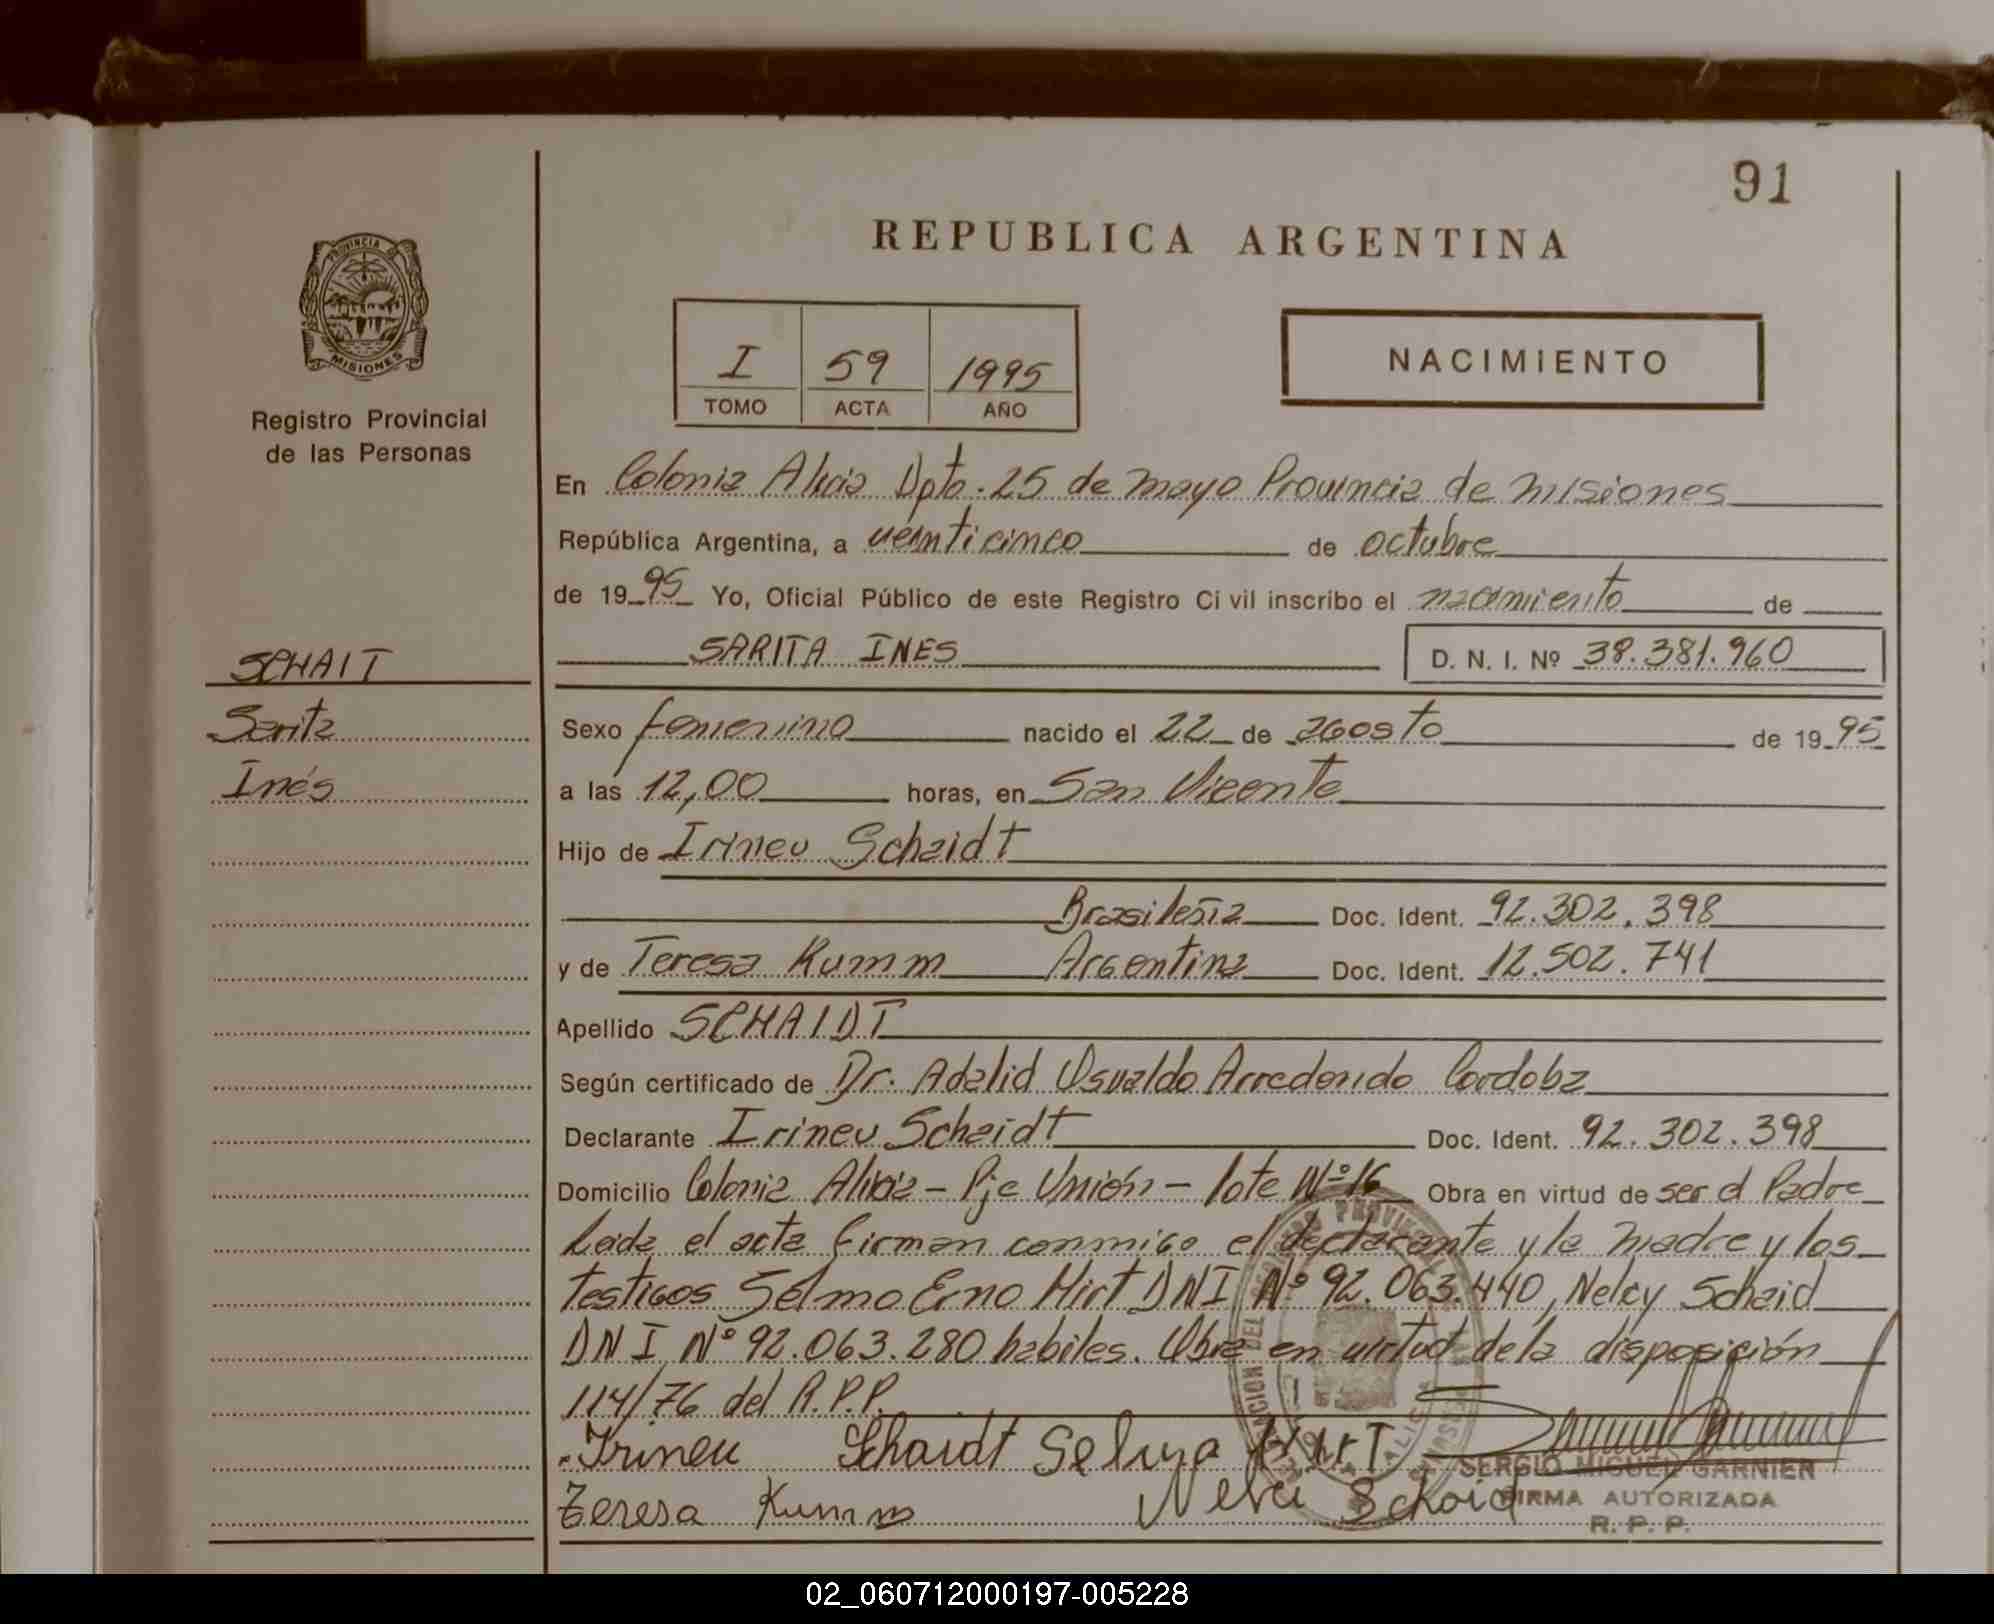 91
REPUBLICA ARGENTINA
PROVINCIA
MISIONES
Registro Provincial
de las Personas
I 59 1995
TOMO ACTA AÑO
NACIMIENTO
En Colonia Alicia Dpto. 25 de mayo Provincia de misiones
República Argentina, a veinticinco de octubre
de 1995 Yo, Oficial Público de este Registro Civil inscribo el nacimiento de
SARITA INES D. N. I. Nº 38.381.960
SCHAIT
Sarita
Inés
Sexo femenino nacido el 22 de agosto de 1995
a las 12,00 horas, en San Vicente
Hijo de Irineu Schaidt
Brasileña Doc. Ident. 92.302.398
y de Teresa Kumm Argentina Doc. Ident. 12.502.741
Apellido SCHAIDT
Según certificado de Dr. Adalid Osvaldo Arredondo Cordoba
Declarante Irineu Schaidt Doc. Ident. 92.302.398
Domicilio Colonia Alicia - Pje Unión - lote Nº 16 Obra en virtud de ser el Padre
Leida el acta firman conmigo el declarante y la madre y los
testigos Selmo Erno Hirt DNI Nº 92.063.440, Nelcy Schaid
DNI Nº 92.063.280 habiles. Obra en virtud de la disposición
114/76 del R.P.P.
Irineu Schaidt Selmo Hirt
SERGIO MIGUEL GARNIER
Teresa Kumm Nelci Schaid
FIRMA AUTORIZADA
R. P. P.
02_060712000197-005228